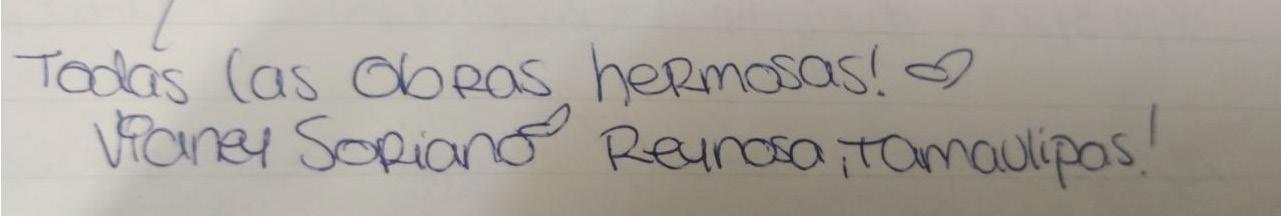 Todas las obras hermosas! ♡
Vianey Soriano Reynosa, Tamaulipas!